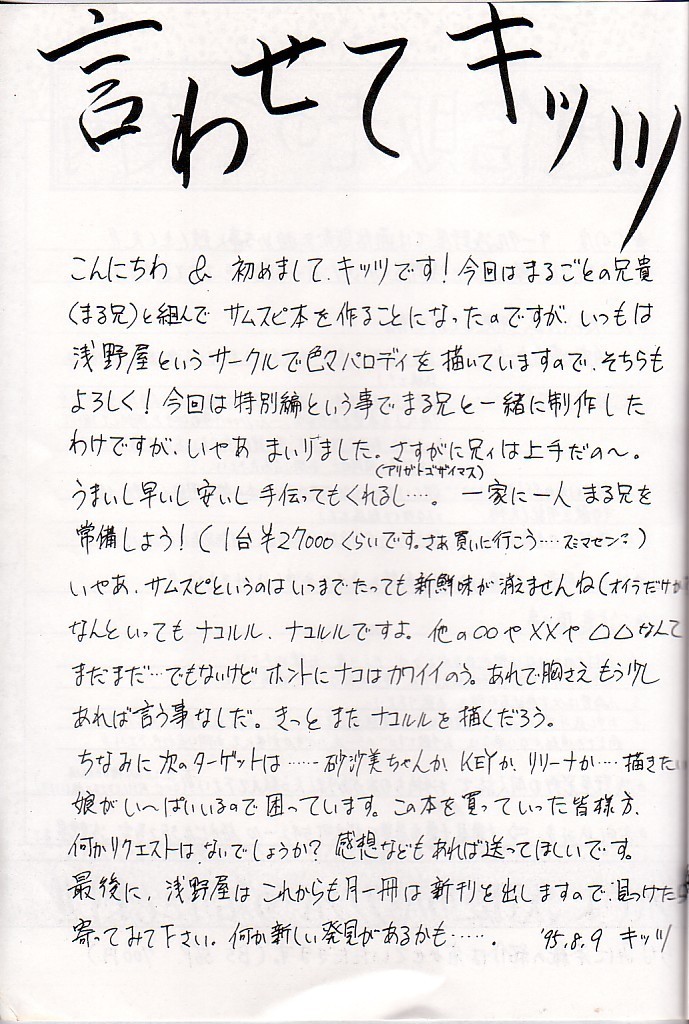 言わせてキッツ
こんにちわ & 初めまして、キッツです！今回はまるごとの兄貴
(まる兄)と組んで サムスピ本を作ることになったのですが、いつもは
浅野屋というサークルで色々パロディを描いていますので、そちらも
よろしく！今回は特別編という事でまる兄と一緒に制作した
わけですが、いやあ まいりました。さすがに兄ィは上手だの〜。
(アリガトゴザイマス)
うまいし早いし安いし手伝ってもくれるし……。一家に一人 まる兄を
常備しよう！(1台¥27000くらいです。さあ買いに行こう……スミマセン？)
いやあ、サムスピというのはいつまでたっても新鮮味が消えませんね(オイラだけか
なんといってもナコルル、ナコルルですよ。他の○○や××や△△なんて
まだまだ…でもないけどホントにナコはカワイイのう。あれで胸さえもう少し
あれば言う事なしだ。きっとまたナコルルを描くだろう。
ちなみに次のターゲットは……砂沙美ちゃんか、KEYか、リリーナか…描きたい
娘がい〜ぱいいるので困っています。この本を買っていった皆様方、
何かリクエストは、ないでしょうか？感想などもあれば送ってほしいです。
最後に、浅野屋はこれからも月一冊は新刊を出しますので、見つけたら
寄ってみて下さい。何か新しい発見があるかも……。 '95.8.9 キッツ